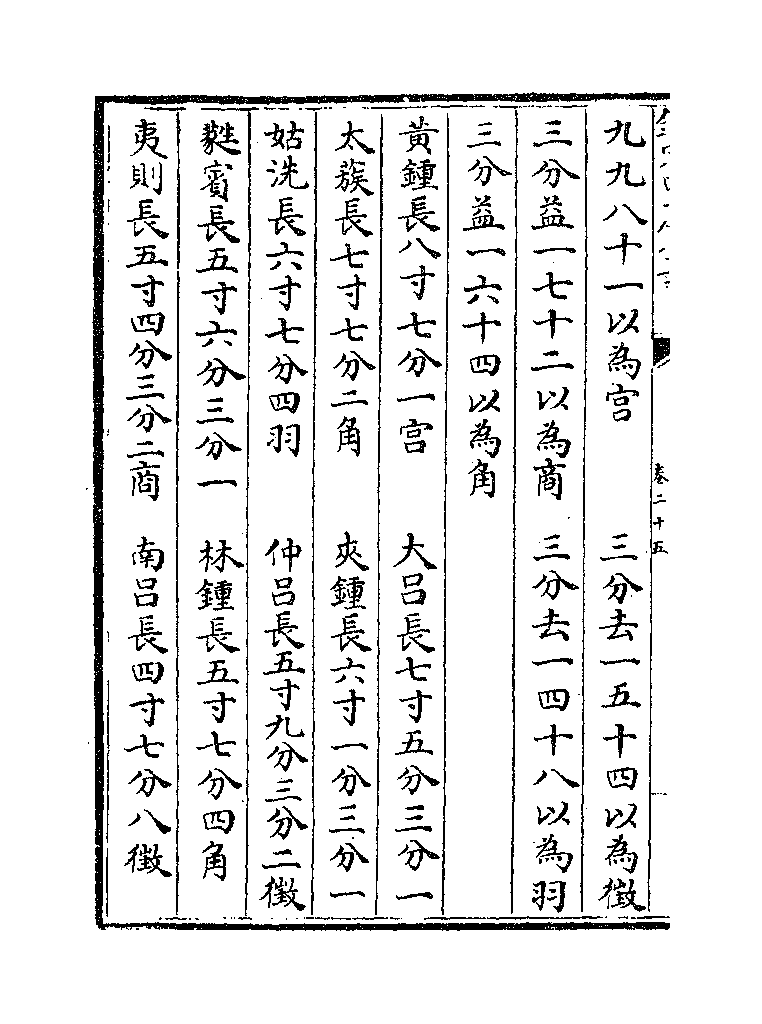 卷二十五
九九八十一以為宫　三分去一五十四以為徵
三分益一七十二以為商　三分去一四十八以為羽
三分益一六十四以為角
黃鍾長八寸七分一宫　大吕長七寸五分三分一
太蔟長七寸七分二角　夾鍾長六寸一分三分一
姑洗長六寸七分四羽　仲吕長五寸九分三分二徵
蕤賓長五寸六分三分一　林鍾長五寸七分四角
夷則長五寸四分三分二商　南吕長四寸七分八徵